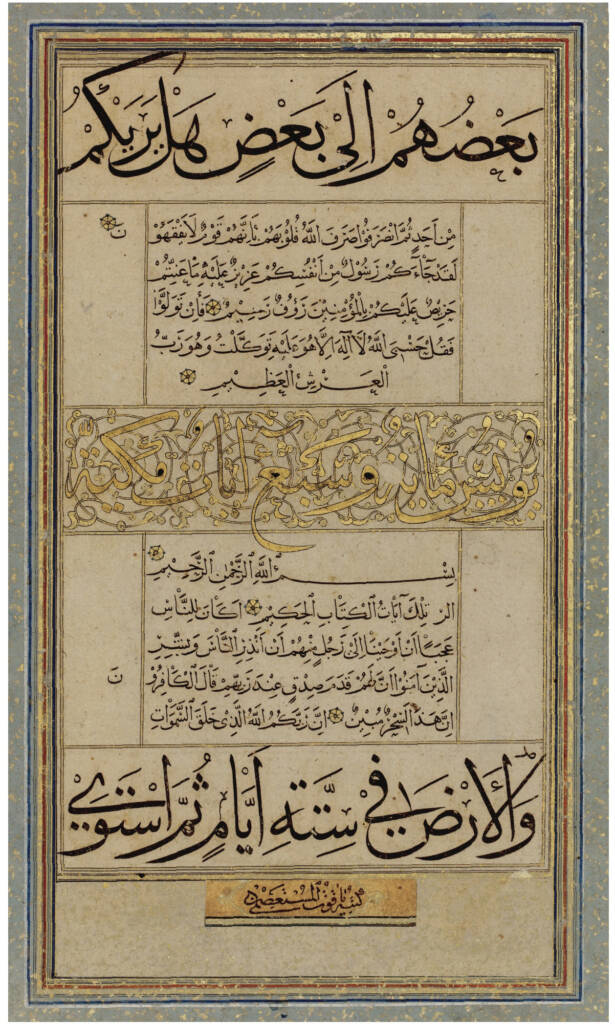 بَعْضُهُمْ اِلٰى بَعْضٍ هَلْ يَرٰيكُمْ
مِنْ اَحَدٍ ثُمَّ انْصَرَفُوا صَرَفَ اللّٰهُ قُلُوبَهُمْ بِاَنَّهُمْ قَوْمٌ لَا يَفْقَهُو ن
لَقَدْ جَاءَكُمْ رَسُولٌ مِنْ اَنْفُسِكُمْ عَزِيزٌ عَلَيْهِ مَا عَنِتُّمْ
حَرِيصٌ عَلَيْكُمْ بِالْمُؤْمِنِينَ رَؤُفٌ رَحِيمٌ فَاِنْ تَوَلَّوْا
فَقُلْ حَسْبِيَ اللّٰهُ لَا اِلٰهَ اِلَّا هُوَ عَلَيْهِ تَوَكَّلْتُ وَهُوَ رَبُّ
الْعَرْشِ الْعَظِيمِ
يونس مائة وسبع آيات مكية
بِسْمِ اللّٰهِ الرَّحْمٰنِ الرَّحِيمِ
الر تِلْكَ آيَاتُ الْكِتَابِ الْحَكِيمِ اَكَانَ لِلنَّاسِ
عَجَبًا اَنْ اَوْحَيْنَا اِلٰى رَجُلٍ مِنْهُمْ اَنْ اَنْذِرِ النَّاسَ وَبَشِّرِ
الَّذِينَ آمَنُوا اَنَّ لَهُمْ قَدَمَ صِدْقٍ عِنْدَ رَبِّهِمْ قَالَ الْكَافِرُو نَ
اِنَّ هٰذَا لَسِحْرٌ مُبِينٌ اِنَّ رَبَّكُمُ اللّٰهُ الَّذِي خَلَقَ السَّمٰوَاتِ
وَالْاَرْضَ فِي سِتَّةِ اَيَّامٍ ثُمَّ اسْتَوٰى
كتبه ياقوت المستعصمي